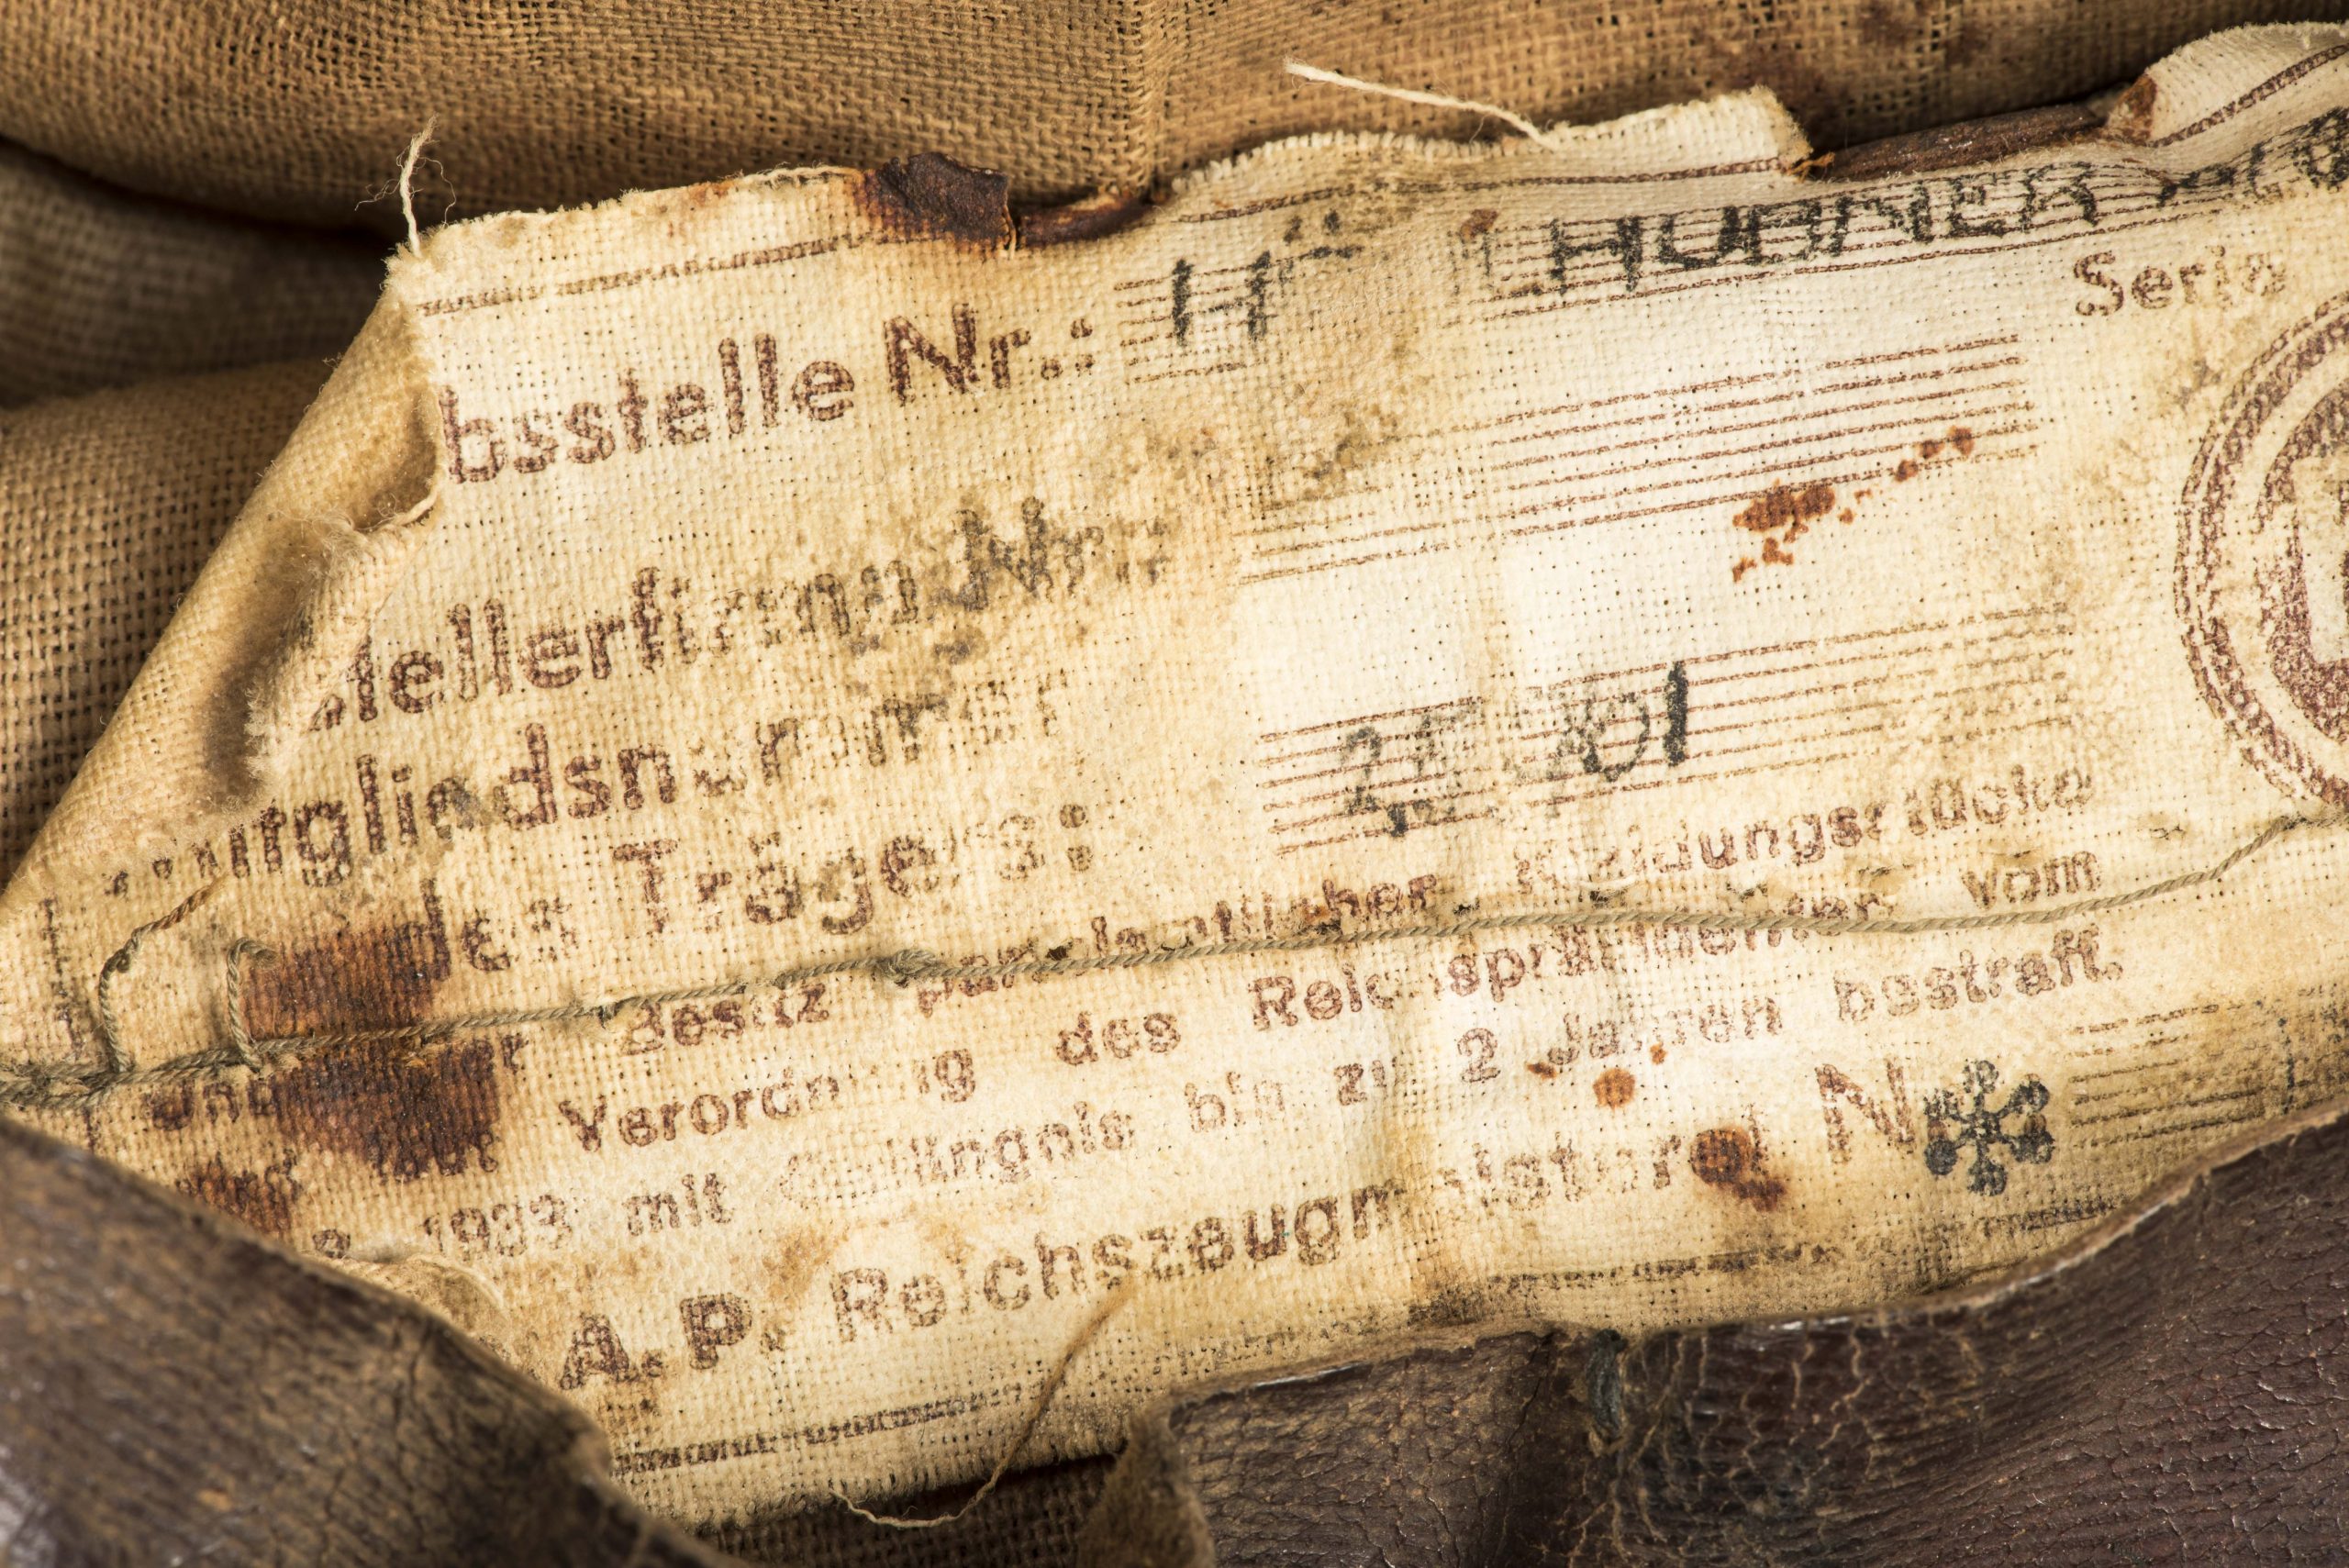 bsstelle Nr.: H HÜBNER
Serie
stellerfirma Nr.:
Mitgliedsnummer
des Trägers:
Unbefugter Besitz parteiamtlicher Kleidungsstücke
wird laut Verordnung des Reichspräsidenten vom
3. 1933 mit Gefängnis bis zu 2 Jahren bestraft.
A.P. Reichszeugmeisterei Nr